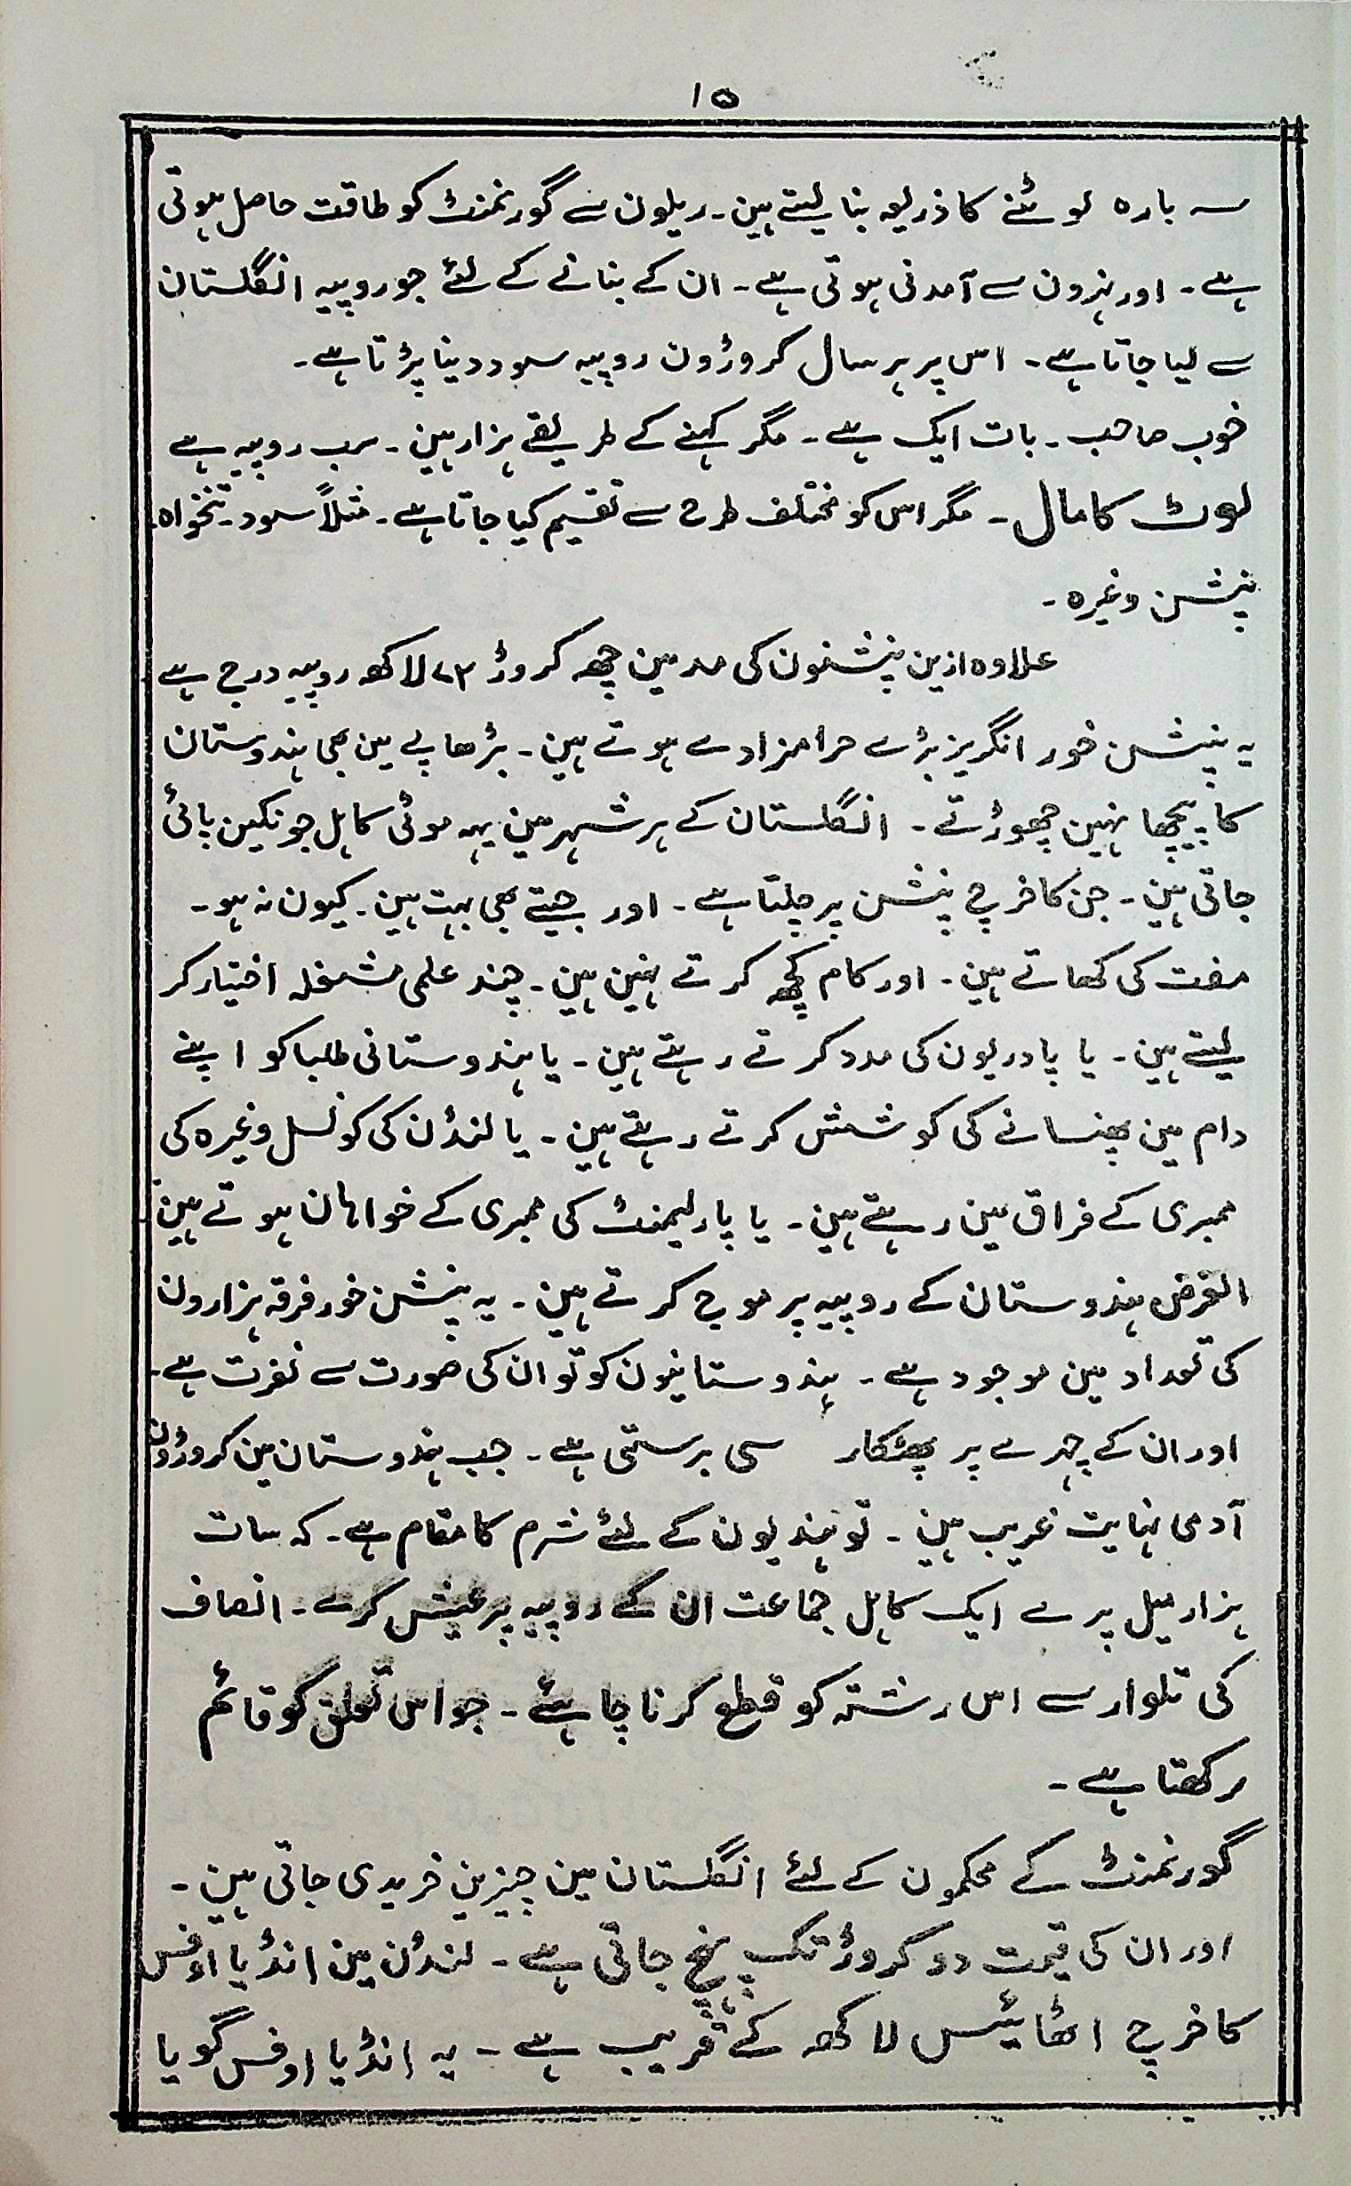 ۱۵
سہ بارہ لوٹنے کا ذریعہ بنا لیتے ہین۔ ریلون سے گورنمنٹ کو طاقت حاصل ہوتی
ہے۔ اور نہرون سے آمدنی ہوتی ہے۔ ان کے بنانے کے لئے جو روپیہ انگلستان
سے لیا جاتا ہے۔ اس پر ہر سال کروڑون روپیہ سود دینا پڑتا ہے۔
خوب صاحب۔ بات ایک ہے۔ مگر کہنے کے طریقے ہزار ہین۔ سب روپیہ ہے
لوٹ کا مال۔ مگر اس کو مختلف طرح سے تقسیم کیا جاتا ہے۔ مثلاً سود۔ تنخواہ
پنشن وغیرہ۔
علاوہ ازین پنشنون کی مد مین چھہ کروڑ ۷۳ لاکھ روپیہ درج ہے
یہ پنشن خور انگریز بڑے حرامزادے ہوتے ہین۔ بڑھاپے مین بھی ہندوستان
کا پیچھا نہین چھوڑتے۔ انگلستان کے ہر شہر مین یہہ موئی کاہل جونکین پائی
جاتی ہین۔ جن کا خرچ پنشن پر چلتا ہے۔ اور جیتے بھی بہت ہین۔ کیون نہ ہو۔
مفت کی کھاتے ہین۔ اور کام کچھ کرتے نہین ہین۔ چند علمی مشغلہ اختیار کر
لیتے ہین۔ یا پادریون کی مدد کرتے رہتے ہین۔ یا ہندوستانی طلبا کو اپنے
دام مین پھنسانے کی کوشش کرتے رہتے ہین۔ یا لنڈن کی کونسل وغیرہ کی
ممبری کے فراق مین رہتے ہین۔ یا پارلیمنٹ کی ممبری کے خواہان ہوتے ہین
الغرض ہندوستان کے روپیہ پر موج کرتے ہین۔ یہ پنشن خور فرقہ ہزارون
کی تعداد مین موجود ہے۔ ہندوستانیون کو تو ان کی صورت سے نفرت ہے۔
اور ان کے چہرے پر پھٹکار سی برستی ہے۔ جب ہندوستان مین کروڑون
آدمی نہایت غریب ہین۔ تو ہندیون کے لئے شرم کا مقام ہے۔ کہ سات
ہزار میل پرے ایک کاہل جماعت ان کے روپیہ پر عیش کرے۔ انصاف
کی تلوار سے اس رشتہ کو قطع کرنا چاہئے۔ جو اس تعلق کو قائم
رکھتا ہے۔
گورنمنٹ کے محکمون کے لئے انگلستان مین چیزین خریدی جاتی ہین۔
اور ان کی قیمت دو کروڑ تک پہنچ جاتی ہے۔ لنڈن مین انڈیا اوفس
کا خرچ اٹھائیس لاکھ کے قریب ہے۔ یہ انڈیا اوفس گویا